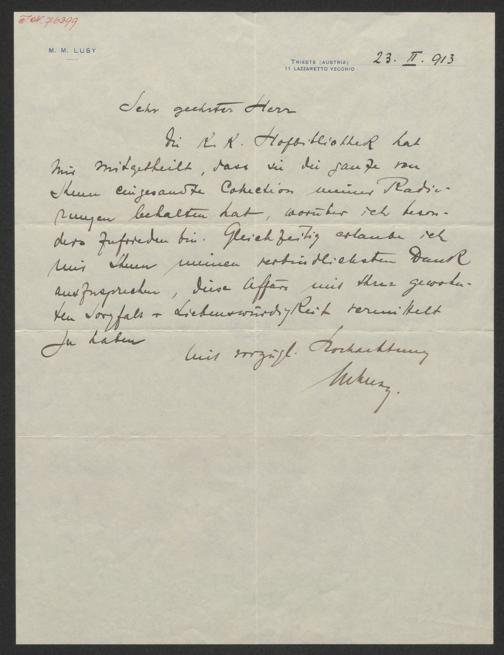 M. M. LUSY
TRIESTE (AUSTRIA)
11 LAZZARETTO VECCHIO
23. II. 913
Sehr geehrter Herr
Die K. K. Hofbibliothek hat
mir mitgetheilt, dass sie die ganze von
Ihnen eingesandte Collection meiner Radie-
rungen behalten hat, worüber ich beson-
ders zufrieden bin. Gleichzeitig erlaube ich
mir Ihnen meinen verbindlichsten Dank
auszusprechen, diese Affäre mit Ihrer gewohn-
ten Sorgfalt + Liebenswürdigkeit vermittelt
zu haben
mit vorzügl. Hochachtung